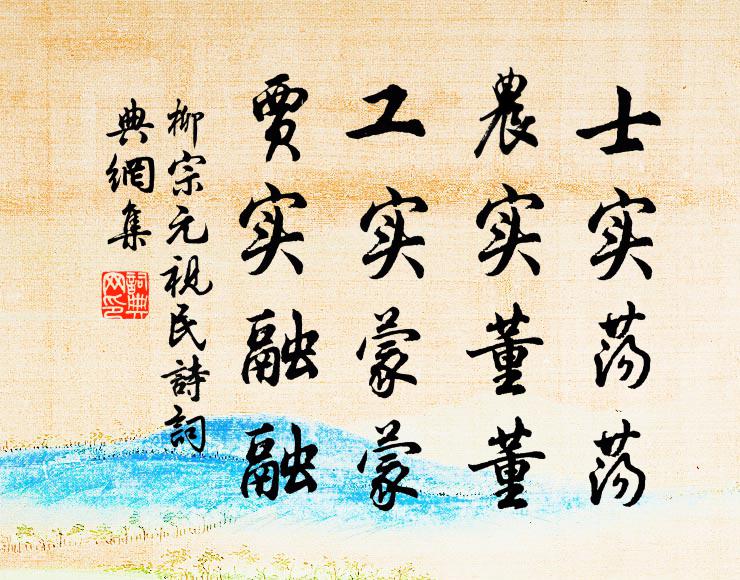 士实荡荡
農实董董
工实蒙蒙
贾实融融
柳宗元視民詩詞
典網集
詞典网印